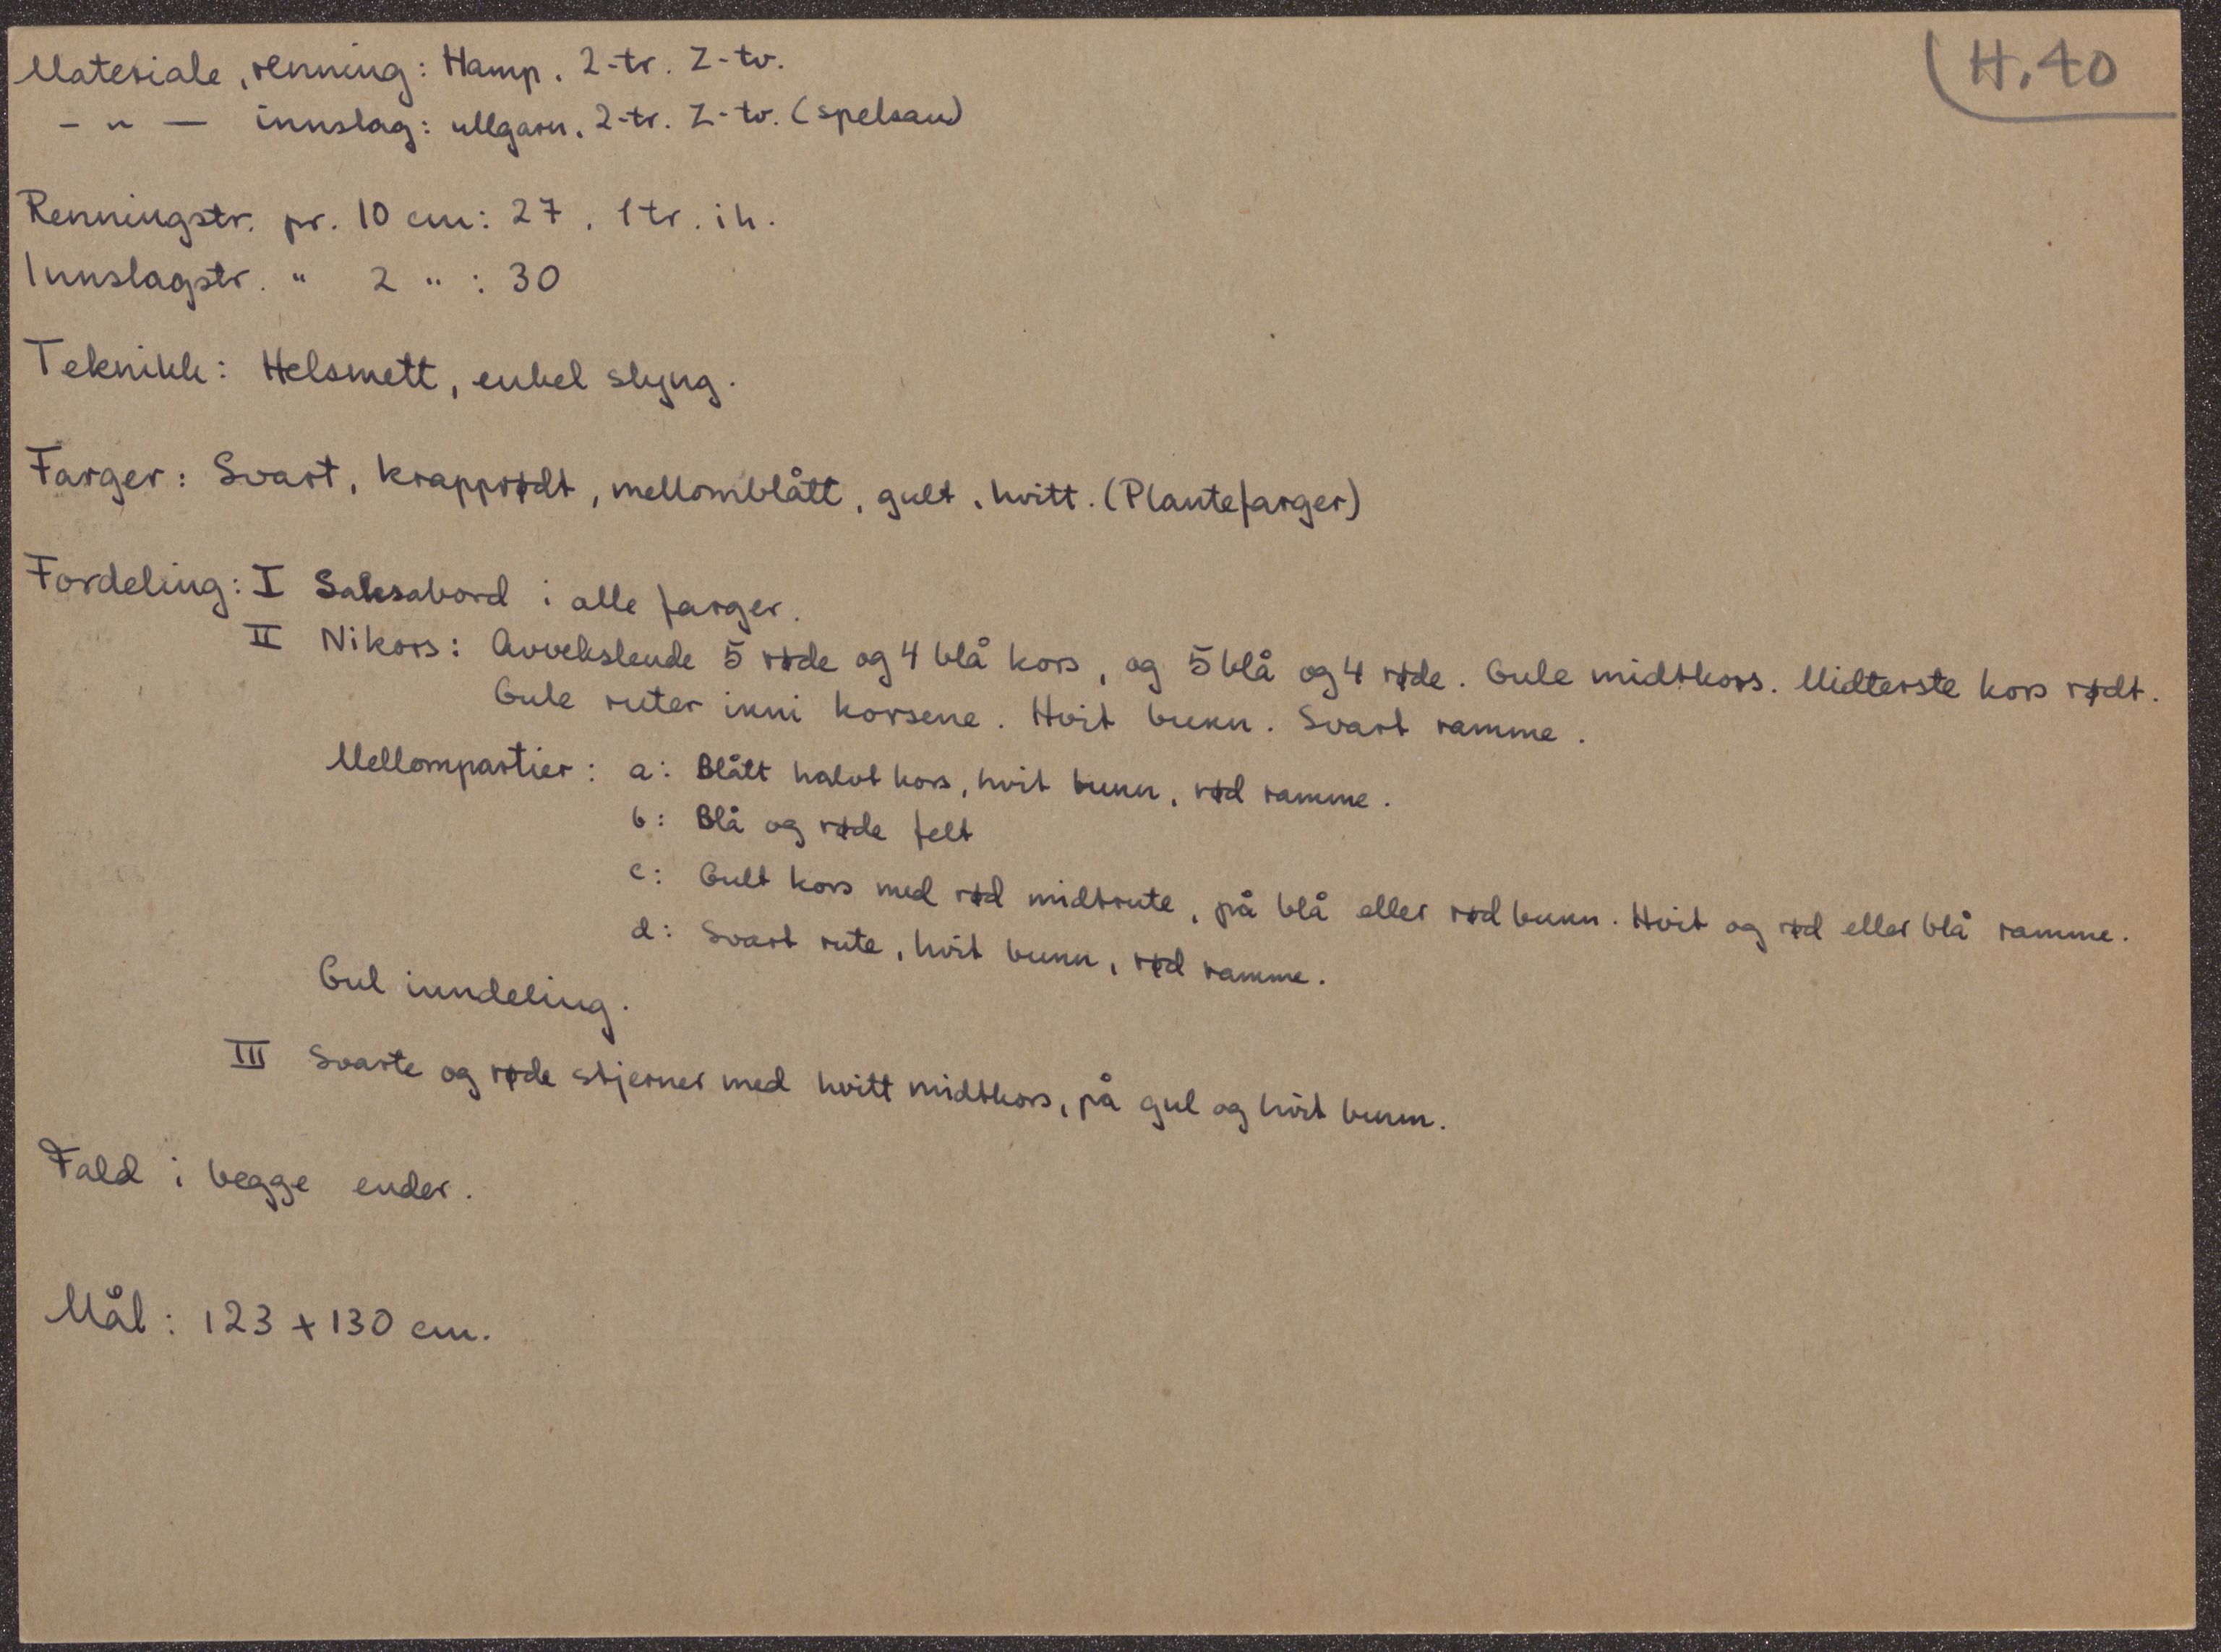 H. 40
Materiale, renning: Hamp. 2-tr. Z-tv.
- " - innslag: ullgarn. 2-tr. Z-tv. (spelsau)
Renningstr. pr. 10 cm: 27, 1 tr. i h.
Innslagstr. " 2 " : 30
Teknikk: Helsmett, enkel slyng.
Farger: Svart, krapprødt, mellomblått, gult, hvitt. (Plantefarger)
Fordeling: I Saksabord i alle farger.
II Nikors: Avvekslende 5 røde og 4 blå kors, og 5 blå og 4 røde. Gule midtkors. Midterste kors rødt.
Gule ruter inni korsene. Hvit bunn. Svart ramme.
Mellompartier: a: Blått halvt kors, hvit bunn, rød ramme.
b: Blå og røde felt
c: Gult kors med rød midtrute, på blå eller rød bunn. Hvit og rød eller blå ramme.
d: Svart rute, hvit bunn, rød ramme.
Gul inndeling.
III Svarte og røde stjerner med hvitt midtkors, på gul og hvit bunn.
Fald i begge ender.
Mål: 123 x 130 cm.